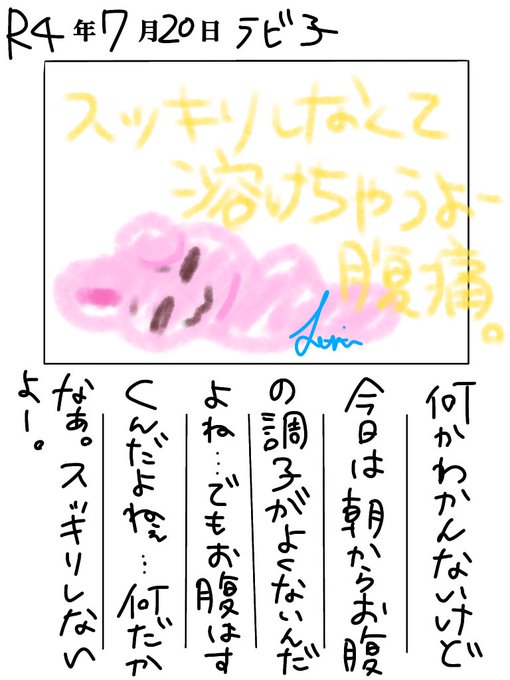 R4年7月20日 ラビ子
スッキリしなくて
溶けちゃうよー
腹痛。
何かわかんないけど
今日は朝からお腹
の調子がよくないんだ
よね…でもお腹はす
くんだよねぇ…何だか
なぁ。スッキリしない
よー。